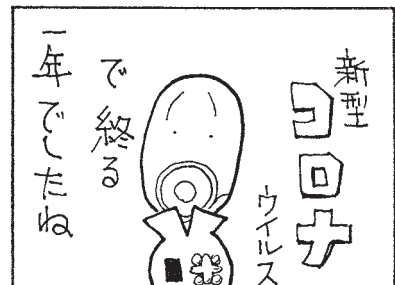 新型
コロナ
ウイルス
で終る
一年でしたね